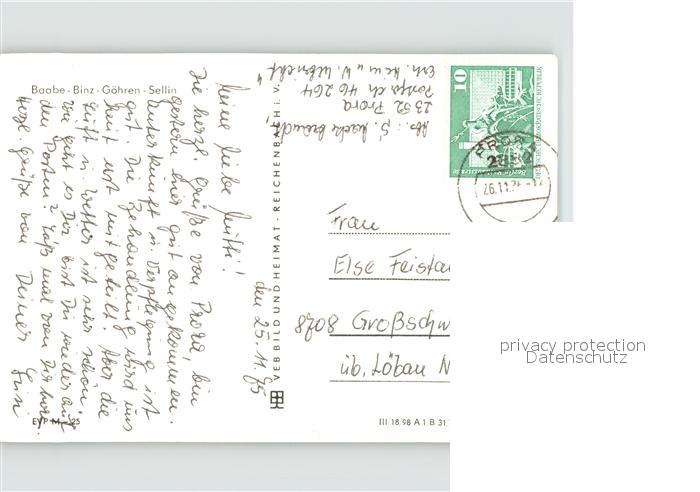 Baabe - Binz - Göhren - Sellin
Meine liebe Mutti!
Die herzl. Grüße von Prora, bin
gestern hier gut angekommen.
Unterkunft u. Verpflegung ist
gut. Die Behandlung wird uns
heut erst mitgeteilt. Aber die
Luft u. Wetter ist sehr schön.
Wie geht es Dir bist Du wieder auf
den Posten? Laß mal von Dir hören.
Herzl. Grüße von Deiner
den 25.11.75
Abs.: S.
2352 Prora
Postfach 46 264
Erh. heim "W. Ulbricht"
VEB BILD UND HEIMAT · REICHENBACH I. V.
10
DEUTSCHE DEMOKRATISCHE REPUBLIK
PRORA
2352
26.11.75
Frau
Else Feista
8708 Großschw
üb. Löbau N
EVP M -,25
III 18/98 A 1 B 31
privacy protection
Datenschutz